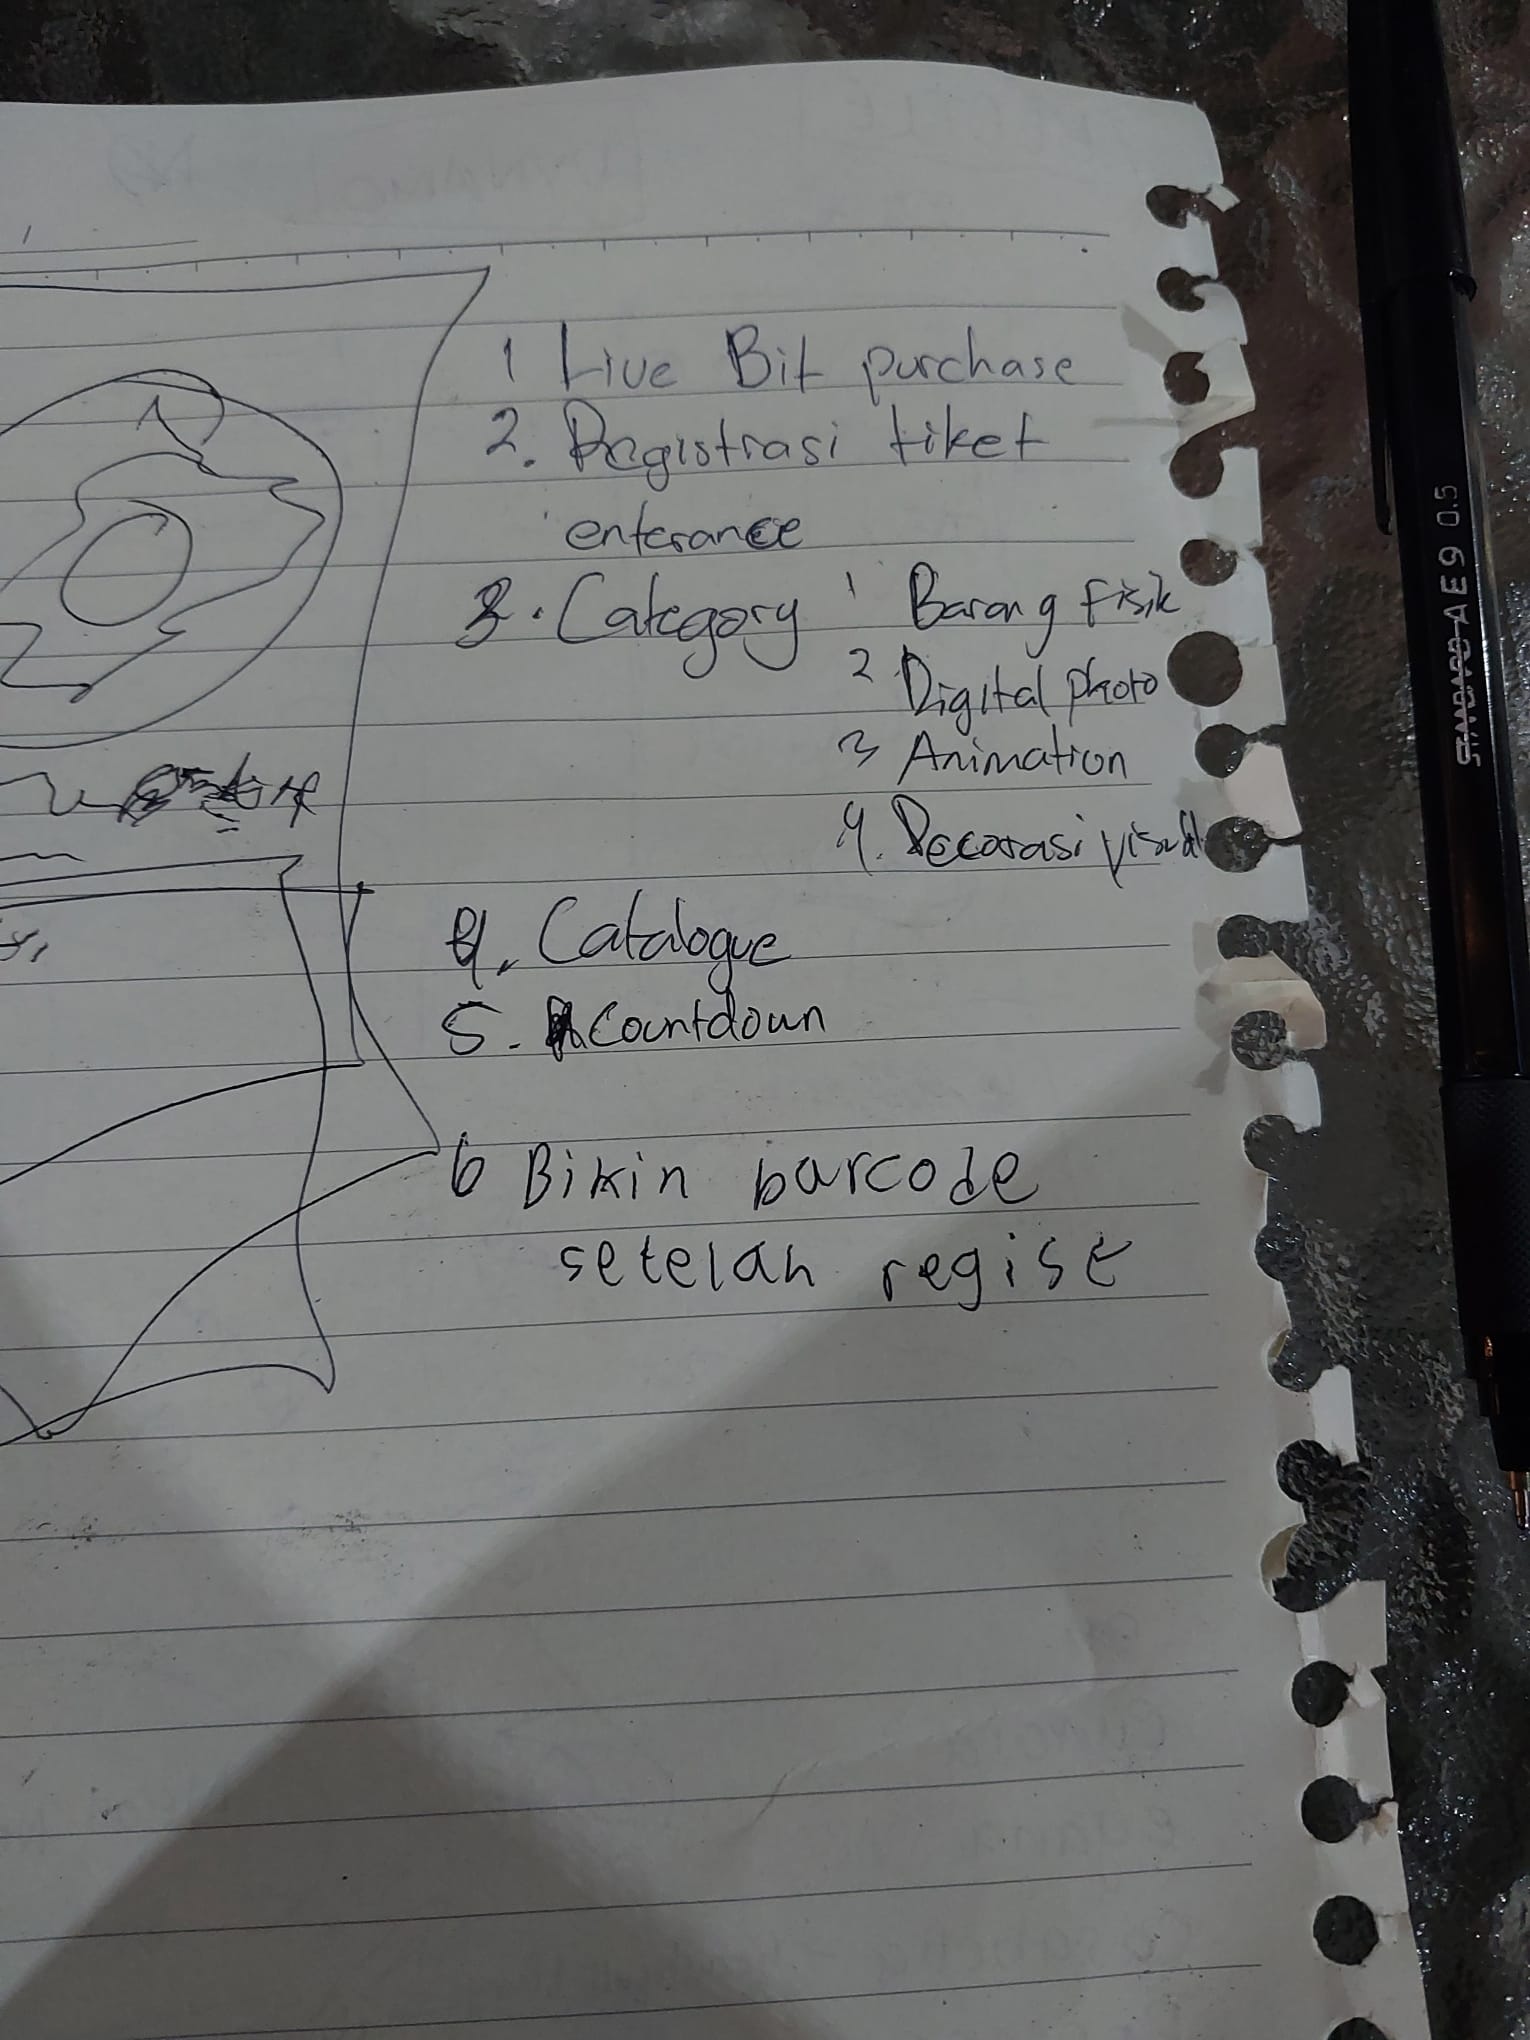 1 Live Bit purchase
2. Registrasi tiket
enterance
3. Category 1 Barang fisik
2 Digital photo
3 Animation
4. Decorasi visual
4. Catalogue
5. Countdown
6 Bikin barcode
setelah regist
STANDARD AE9 0.5